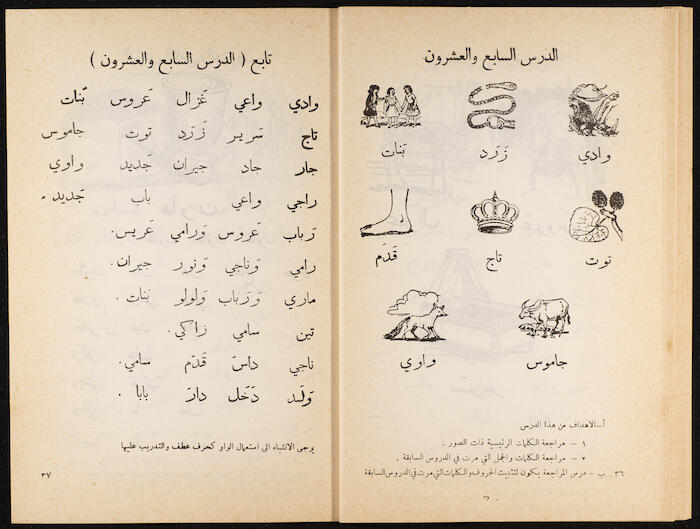 الدرس السابع والعشرون
وادي زَرَد بَنات
توت تاج قَدَم
جاموس واوي
أ ــ الاهداف من هذا الدرس
١ ــ مراجعة الكلمات الرئيسية ذات الصور .
٢ ــ مراجعة الكلمات والجمل التي مرت في الدروس السابقة .
ب ــ درس المراجعة يكون لتثبيت الحروف والكلمات التي مرت في الدروس السابقة
٣٦
تابع ( الدرس السابع والعشرون )
وادي واعي غَزال عَروس بَنات
تاج سَرير زَرَد توت جاموس
جار جاد جيران جَديد واوي
راجي واعي باب جَديد .
رَباب عَروس وَرامي عَريس .
رامي وَناجي وَنور جيران .
ماري وَرَباب وَلولو بَنات .
تين سامي زاكي .
ناجي داسَ قَدَم سامي .
وَلَد دَخَل دارَ بابا .
يرجى الانتباه الى استعمال الواو كحرف عطف والتدريب عليها
٣٧